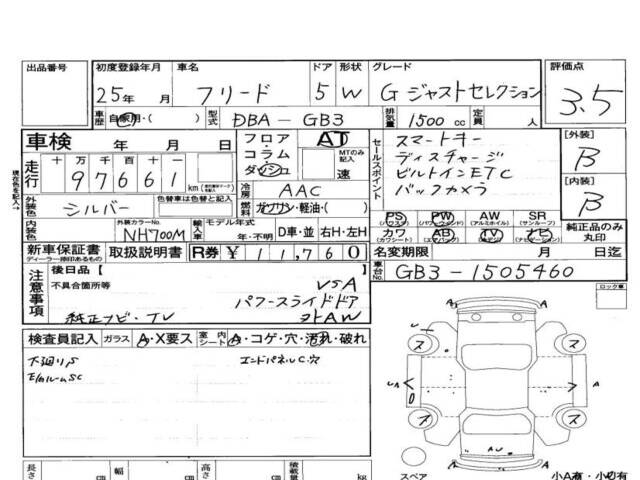 出品番号 初度登録年月 車名 ドア 形状 グレード 評価点
25年 月 フリード 5 W G ジャストセレクション 3.5
車歴 自家用・( ) 型式 DBA-GB3 排気量 1500cc 定員 人
車検 年 月 日 フロア・コラム ダッシュ AT MTのみ記入 速
走行 十万千百十一 97661 km
セールスポイント スマートキー
ディスチャージ
ビルトインETC
バックカメラ
[外装] B
[内装] B
現在色を記入→
外装色 シルバー 色替車は色替と記入 冷房 AAC
燃料 ガソリン・軽油・( )
内装色 外装カラーNo. NH700M 輸入車 モデル年式 年・不明 D車・並 右H・左H
PS PW AW SR
(パワステ) (パワーウィンド) (アルミホイル) (サンルーフ)
カワ AB TV ナビ
(カワシート) (エアバック) (ナビゲーション)
純正品のみ丸印
新車保証書 ディーラー捺印あるもの 取扱説明書 R券 ¥11,760 名変期限 月 日迄
車台No. GB3-1505460
注意事項 後日品 [ ]
不具合箇所等 VSA
パワースライドドア
純正ナビ・TV 社外AW
ロック車
検査員記入 ガラス A・X要ス 室内シート A・コゲ・穴・汚れ・破れ
下廻りS エンドパネルC.穴
E/gルームSC
ス ス
UA A
ス ス
UA
A
スペア 小A有・小凹有
長さ cm 幅 cm 高さ cm 積載量 kg